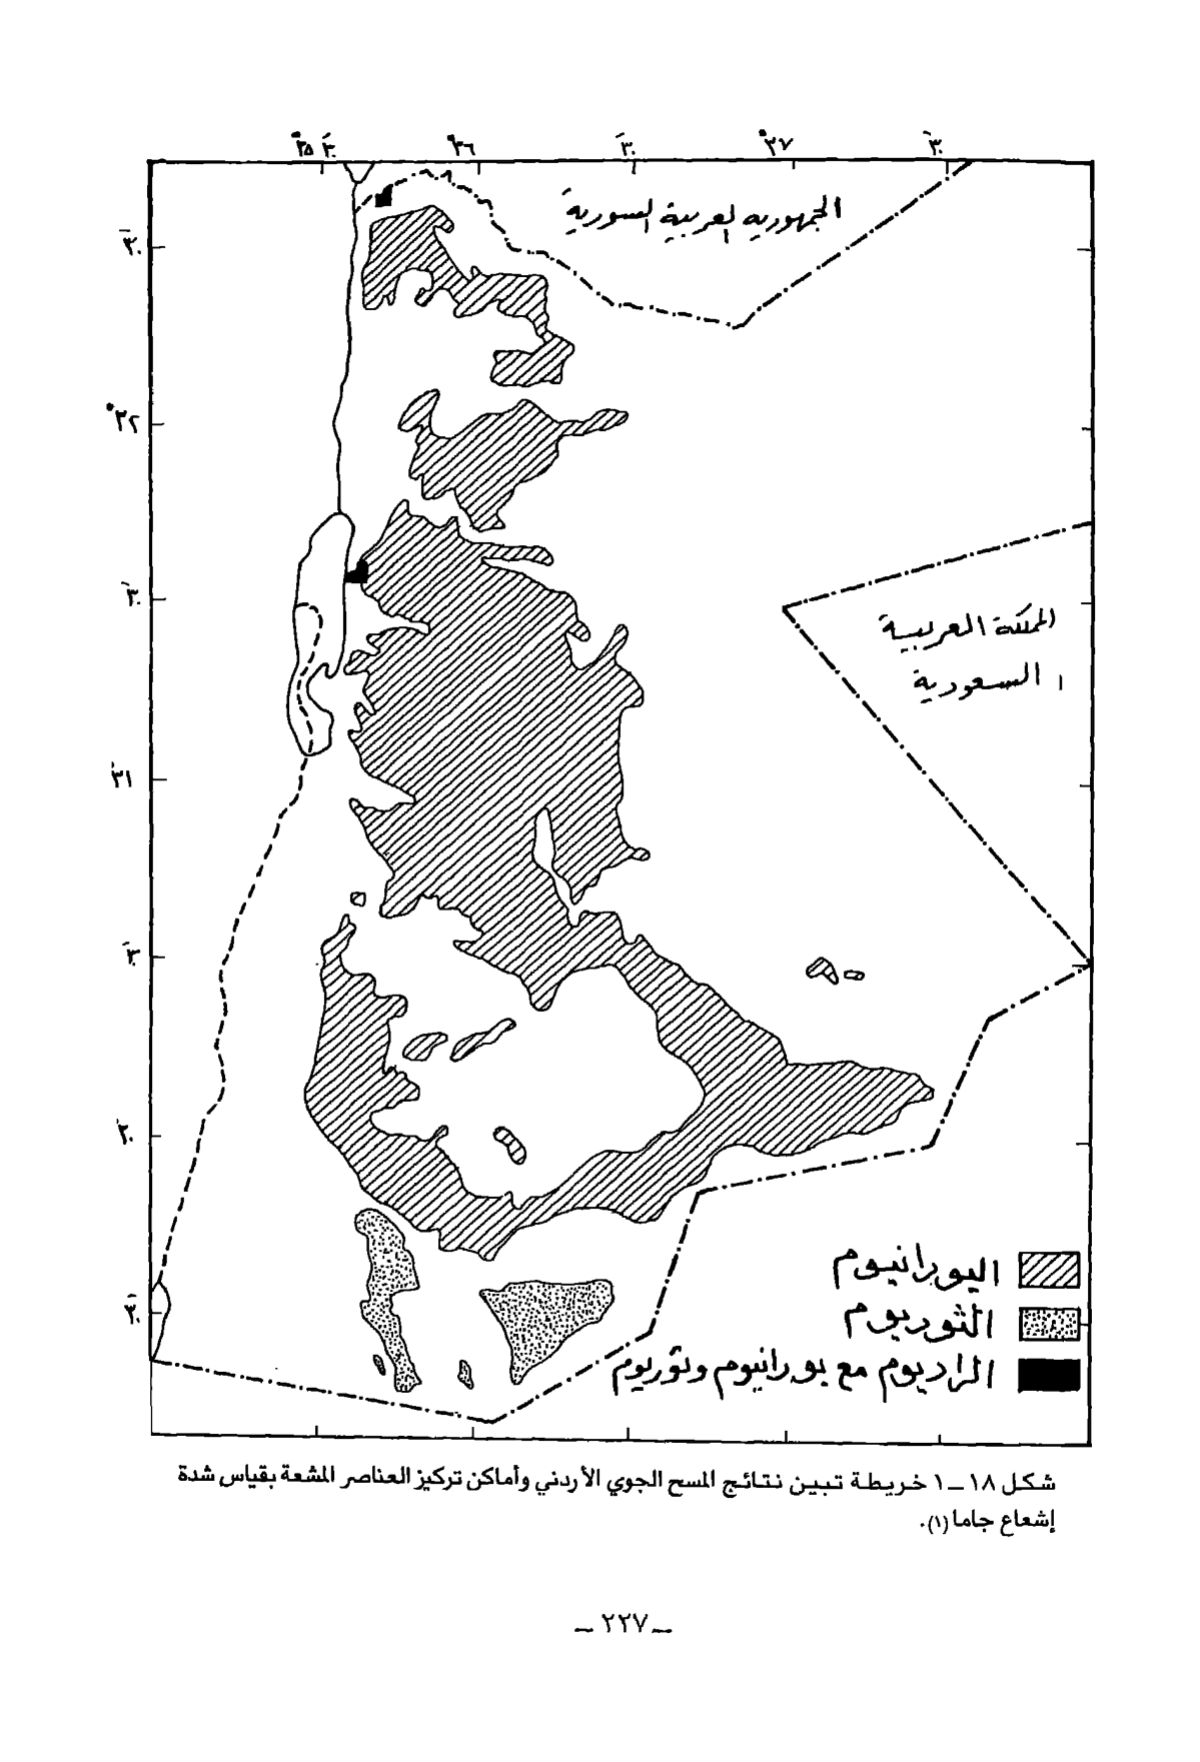 ٣٥° ٣٠َ ٣٦° ٣٠َ ٣٧° ٣٠َ
الجمهورية العربية السورية
٣٠َ
٣٢°
٣٠َ
المملكة العربية
السعودية
٣١
٣٠َ
٣٠
اليورانيوم
الثوريوم
٣٠َ
الراديوم مع يورانيوم وثوريوم
شكل ١٨ ــ ١ خريطة تبين نتائج المسح الجوي الأردني وأماكن تركيز العناصر المشعة بقياس شدة
إشعاع جاما (١).
ــ ٢٢٧ ــ